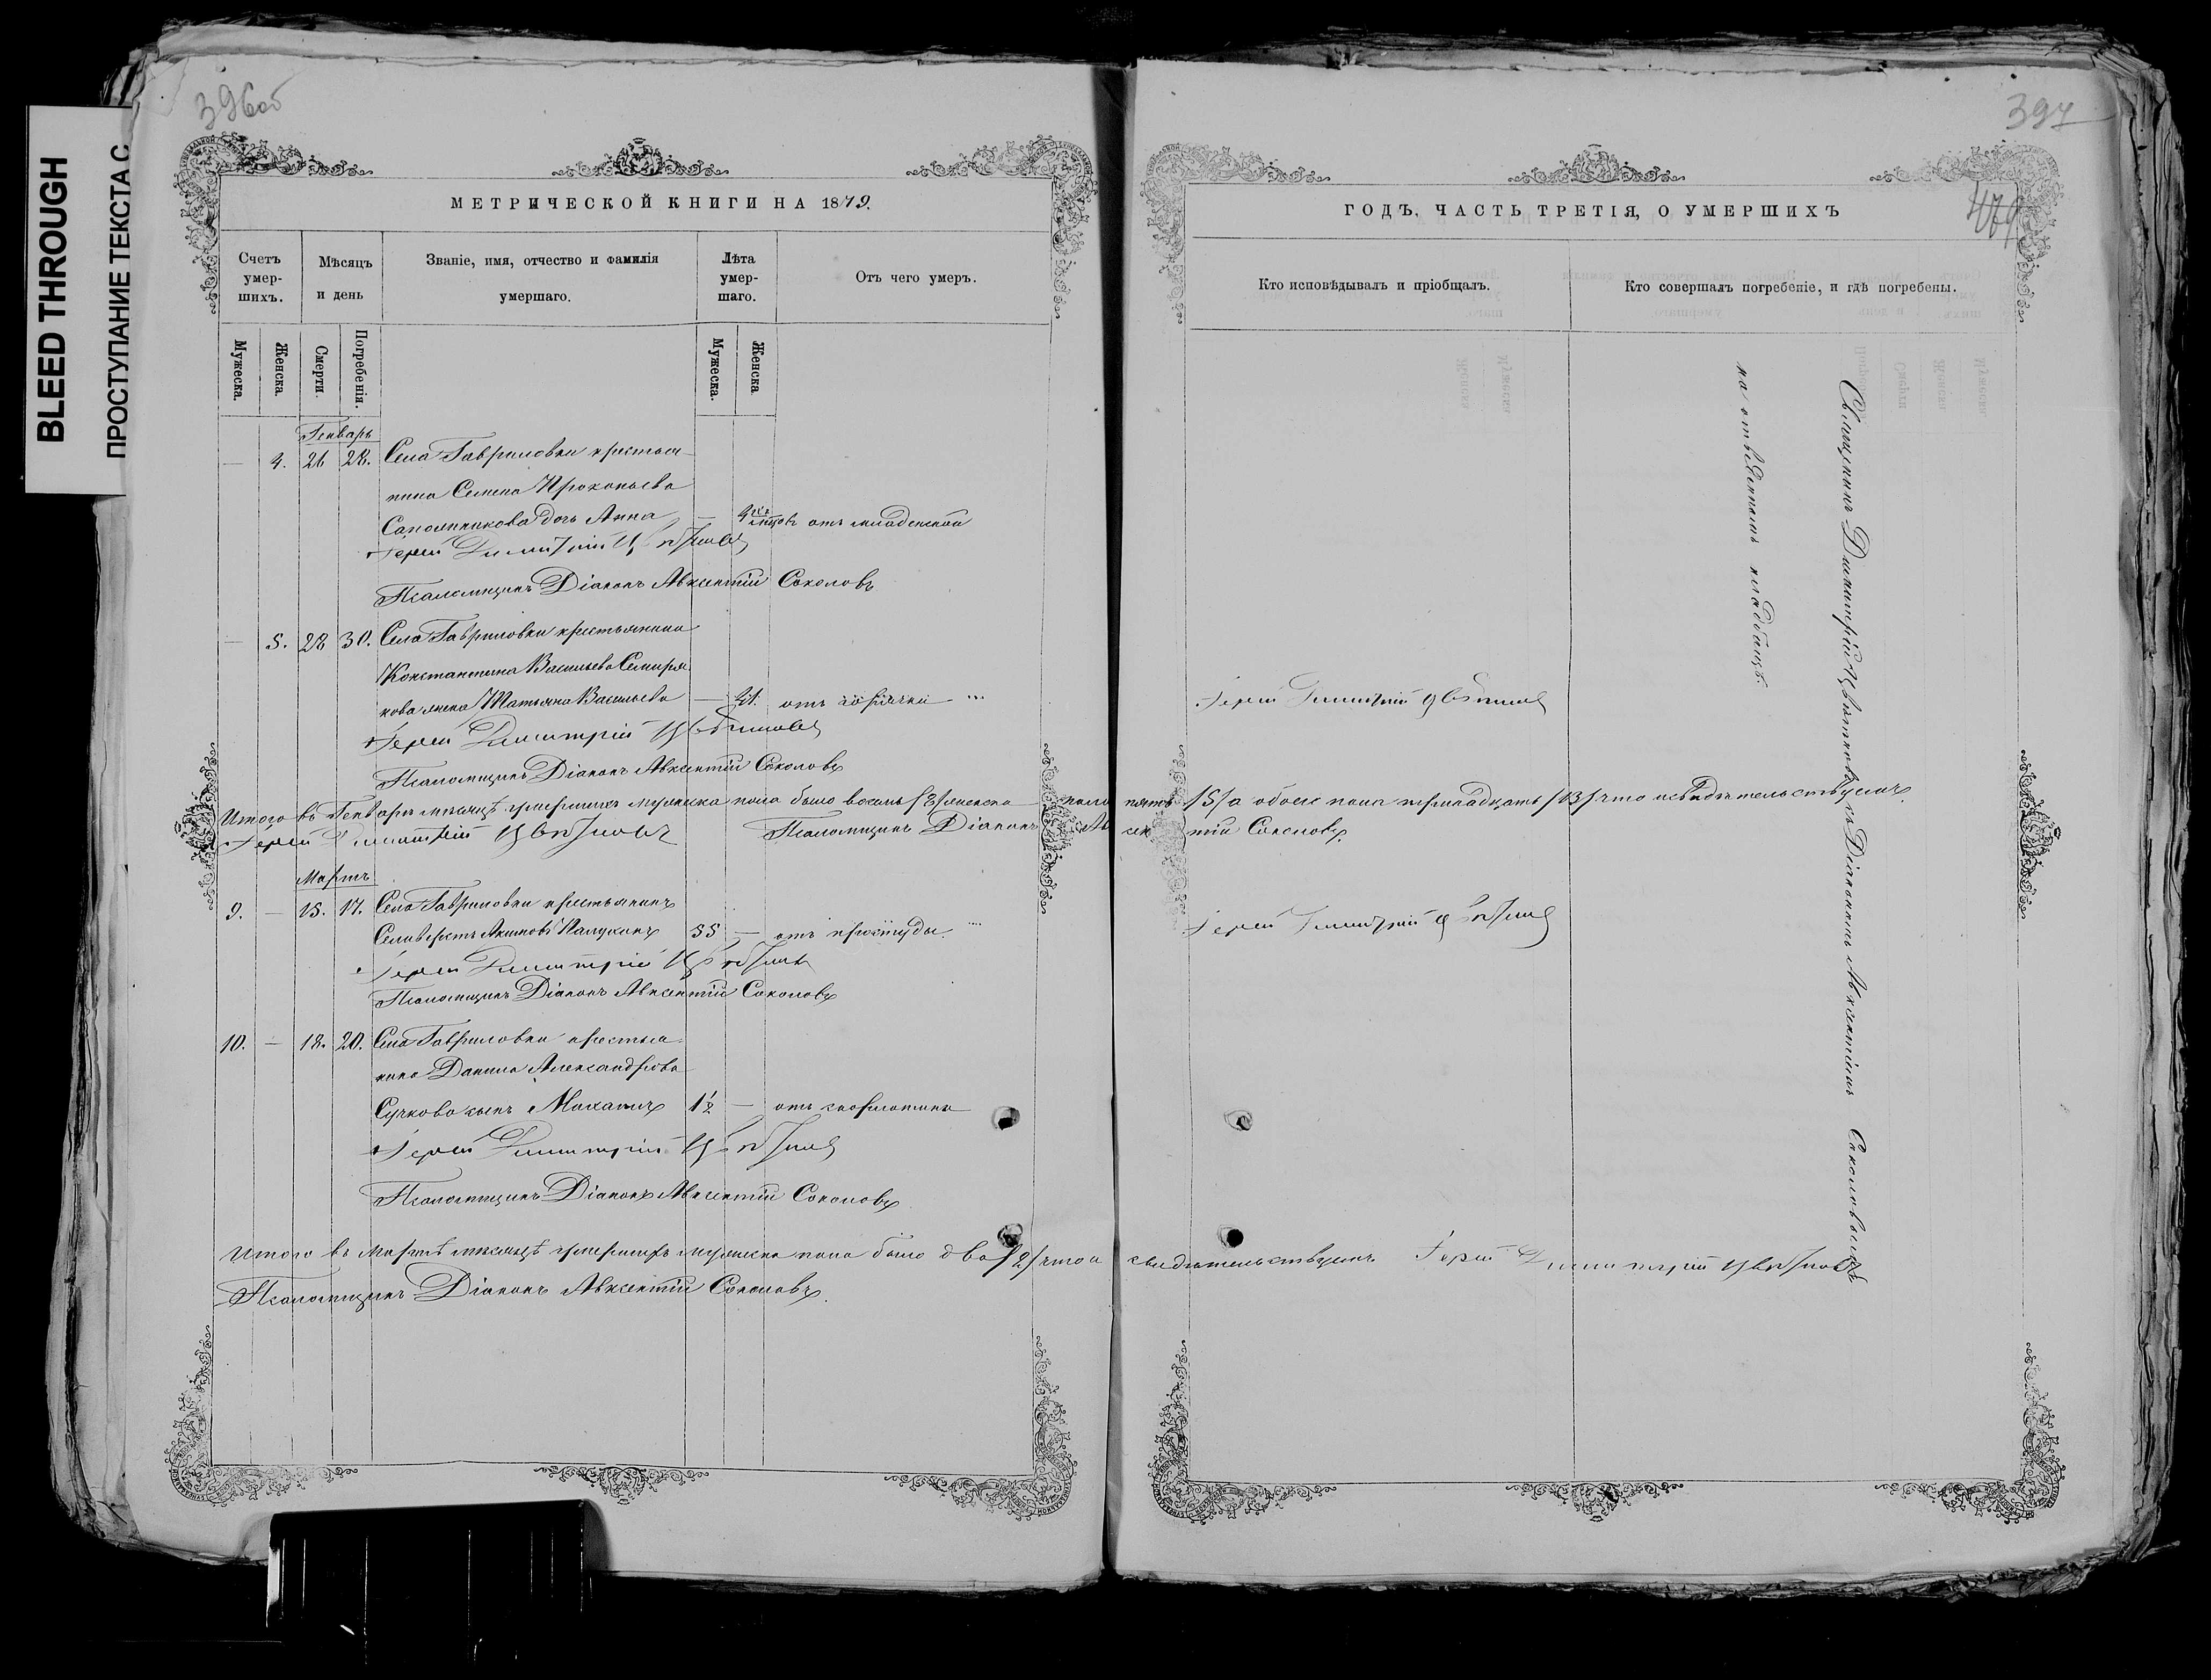 BLEED THROUGH
ПРОСТУПАНИЕ ТЕКСТА С
396об
МЕТРИЧЕСКОЙ КНИГИ НА 1879.
Счетъ умер-шихъ.
Мѣсяцъ и день
Званіе, имя, отчество и фамилія умершаго.
Лѣта умер-шаго.
Отъ чего умеръ.
Мужеска.
Женска.
Смерти.
Погребенія.
Мужеска.
Женска
Генварь
— 4. 26 28. Села Гавриловки крестья-
нина Семена Прокопьева
Сапожникова дочь Анна — 4 отъ младенской
Іерей Димитрій Цвѣтковъ
Псаломщикъ Діаконъ Авксентій Соколовъ
— 5. 28 30. Села Гавриловки крестьянина
Константина Васильева
кова жена Татьяна Васильева — 41. отъ горячки
Іерей Димитрій Цвѣтковъ
Псаломщикъ Діаконъ Авксентій Соколовъ
Итого въ Генварѣ мѣсяцѣ умершихъ мужеска пола было восемь /8/ женска
Іерей Димитрій Цвѣтковъ Псаломщикъ Діаконъ Ав
Мартъ
9. — 15. 17. Села Гавриловки крестьянинъ
Селиверстъ Акимовъ 55 — отъ простуды.
Іерей Димитрій Цвѣтковъ
Псаломщикъ Діаконъ Авксентій Соколовъ
10. — 18. 20. Села Гавриловки крестья-
нина Данила Александрова
Сучкова сынъ 1½ — отъ скорлотины
Іерей Димитрій Цвѣтковъ
Псаломщикъ Діаконъ Авксентій Соколовъ
Итого въ Мартѣ мѣсяцѣ умершихъ мужеска пола было два /2/ что и
Псаломщикъ Діаконъ Авксентій Соколовъ.
397
479
ГОДЪ, ЧАСТЬ ТРЕТІЯ, О УМЕРШИХЪ
Кто исповѣдывалъ и пріобщалъ.
Кто совершалъ погребеніе, и гдѣ погребены.
Іерей Димитрій Цвѣтковъ
пола пять /5/ а обоего пола тринадцать /13/ что и свидѣтельствуемъ
сентій Соколовъ.
Іерей Димитрій Цвѣтковъ
свидѣтельствуемъ Іерей Димитрій Цвѣтковъ
Священникъ Димитрій Цвѣтковъ съ Діакономъ Авксентіемъ Соколовымъ
на отведенномъ кладбищѣ.